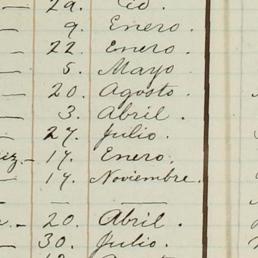 — 29. Id.
— 9. Enero.
— 22. Enero.
— 5. Mayo
— 20. Agosto.
— 3. Abril.
— 27. Julio.
— 17. Enero.
— 17. Noviembre.
— —
— 20. Abril.
— 30. Julio.